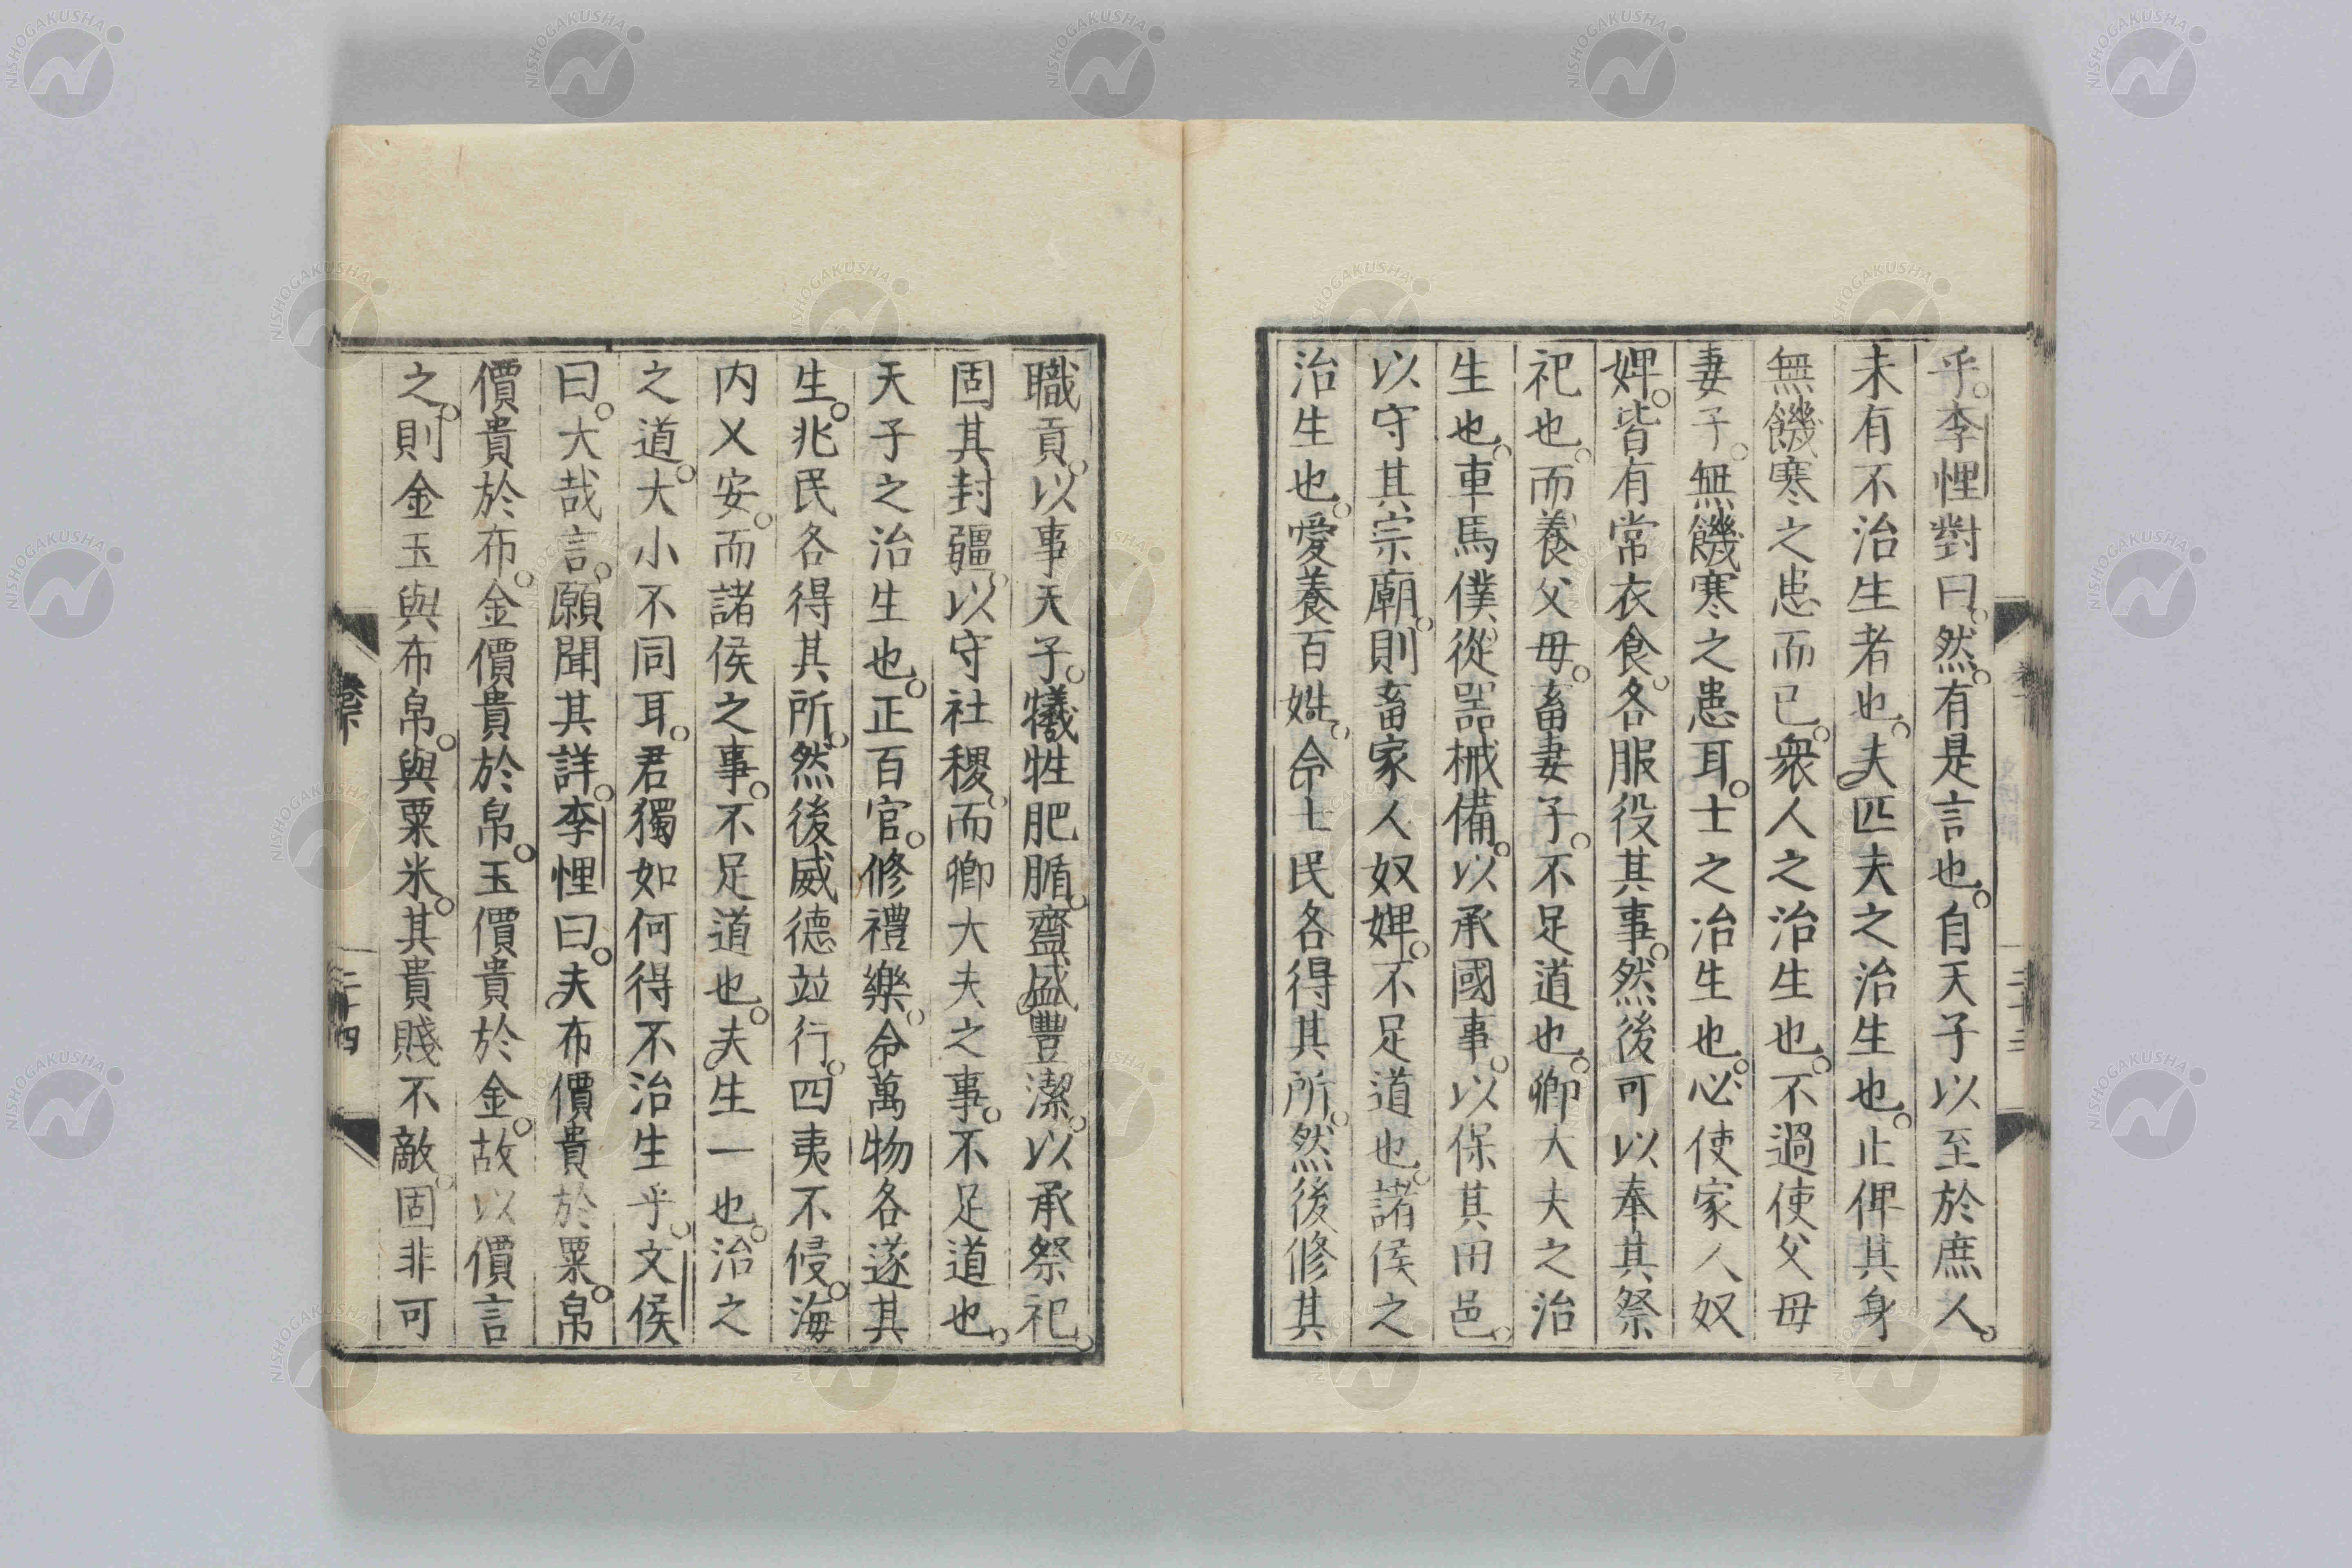 乎。李悝對曰。然。有是言也。自天子以至於庶人。
未有不治生者也。夫匹夫之治生也。止俾其身
無饑寒之患而已。衆人之治生也。不過使父母
妻子。無饑寒之患耳。士之治生也。必使家人奴
婢。皆有常衣食。各服役其事。然後可以奉其祭
祀也。而養父母。畜妻子。不足道也。卿大夫之治
生也。車馬僕從器械備。以承國事。以保其田邑。
以守其宗廟。則畜家人奴婢。不足道也。諸侯之
治生也。愛養百姓。命士民各得其所。然後修其
職貢。以事天子。犧牲肥腯。齍盛豐潔。以承祭祀。
固其封疆。以守社稷。而卿大夫之事。不足道也。
天子之治生也。正百官。修禮樂。命萬物各遂其
生。兆民各得其所。然後威德竝行。四夷不侵。海
内乂安。而諸侯之事。不足道也。夫生一也。治之
之道。大小不同耳。君獨如何得不治生乎。文侯
曰。大哉言。願聞其詳。李悝曰。夫布價貴於粟。帛
價貴於布。金價貴於帛。玉價貴於金。故以價言
之。則金玉與布帛。與粟米。其貴賤不敵。固非可
二十四
NISHOGAKUSHA